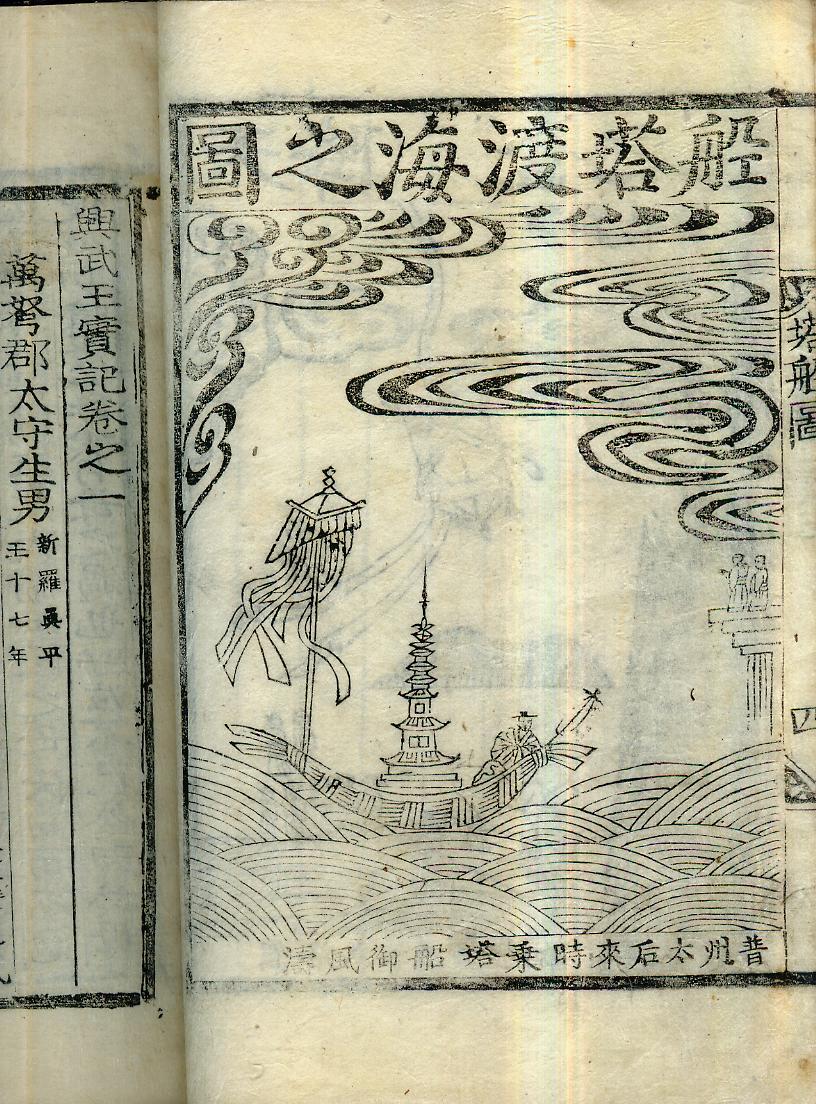 塔船圖
四
船塔渡海之圖
普州太后來時乘塔船御風濤
興武王實記卷之一
萬弩郡太守生男
新羅眞平
王十七年